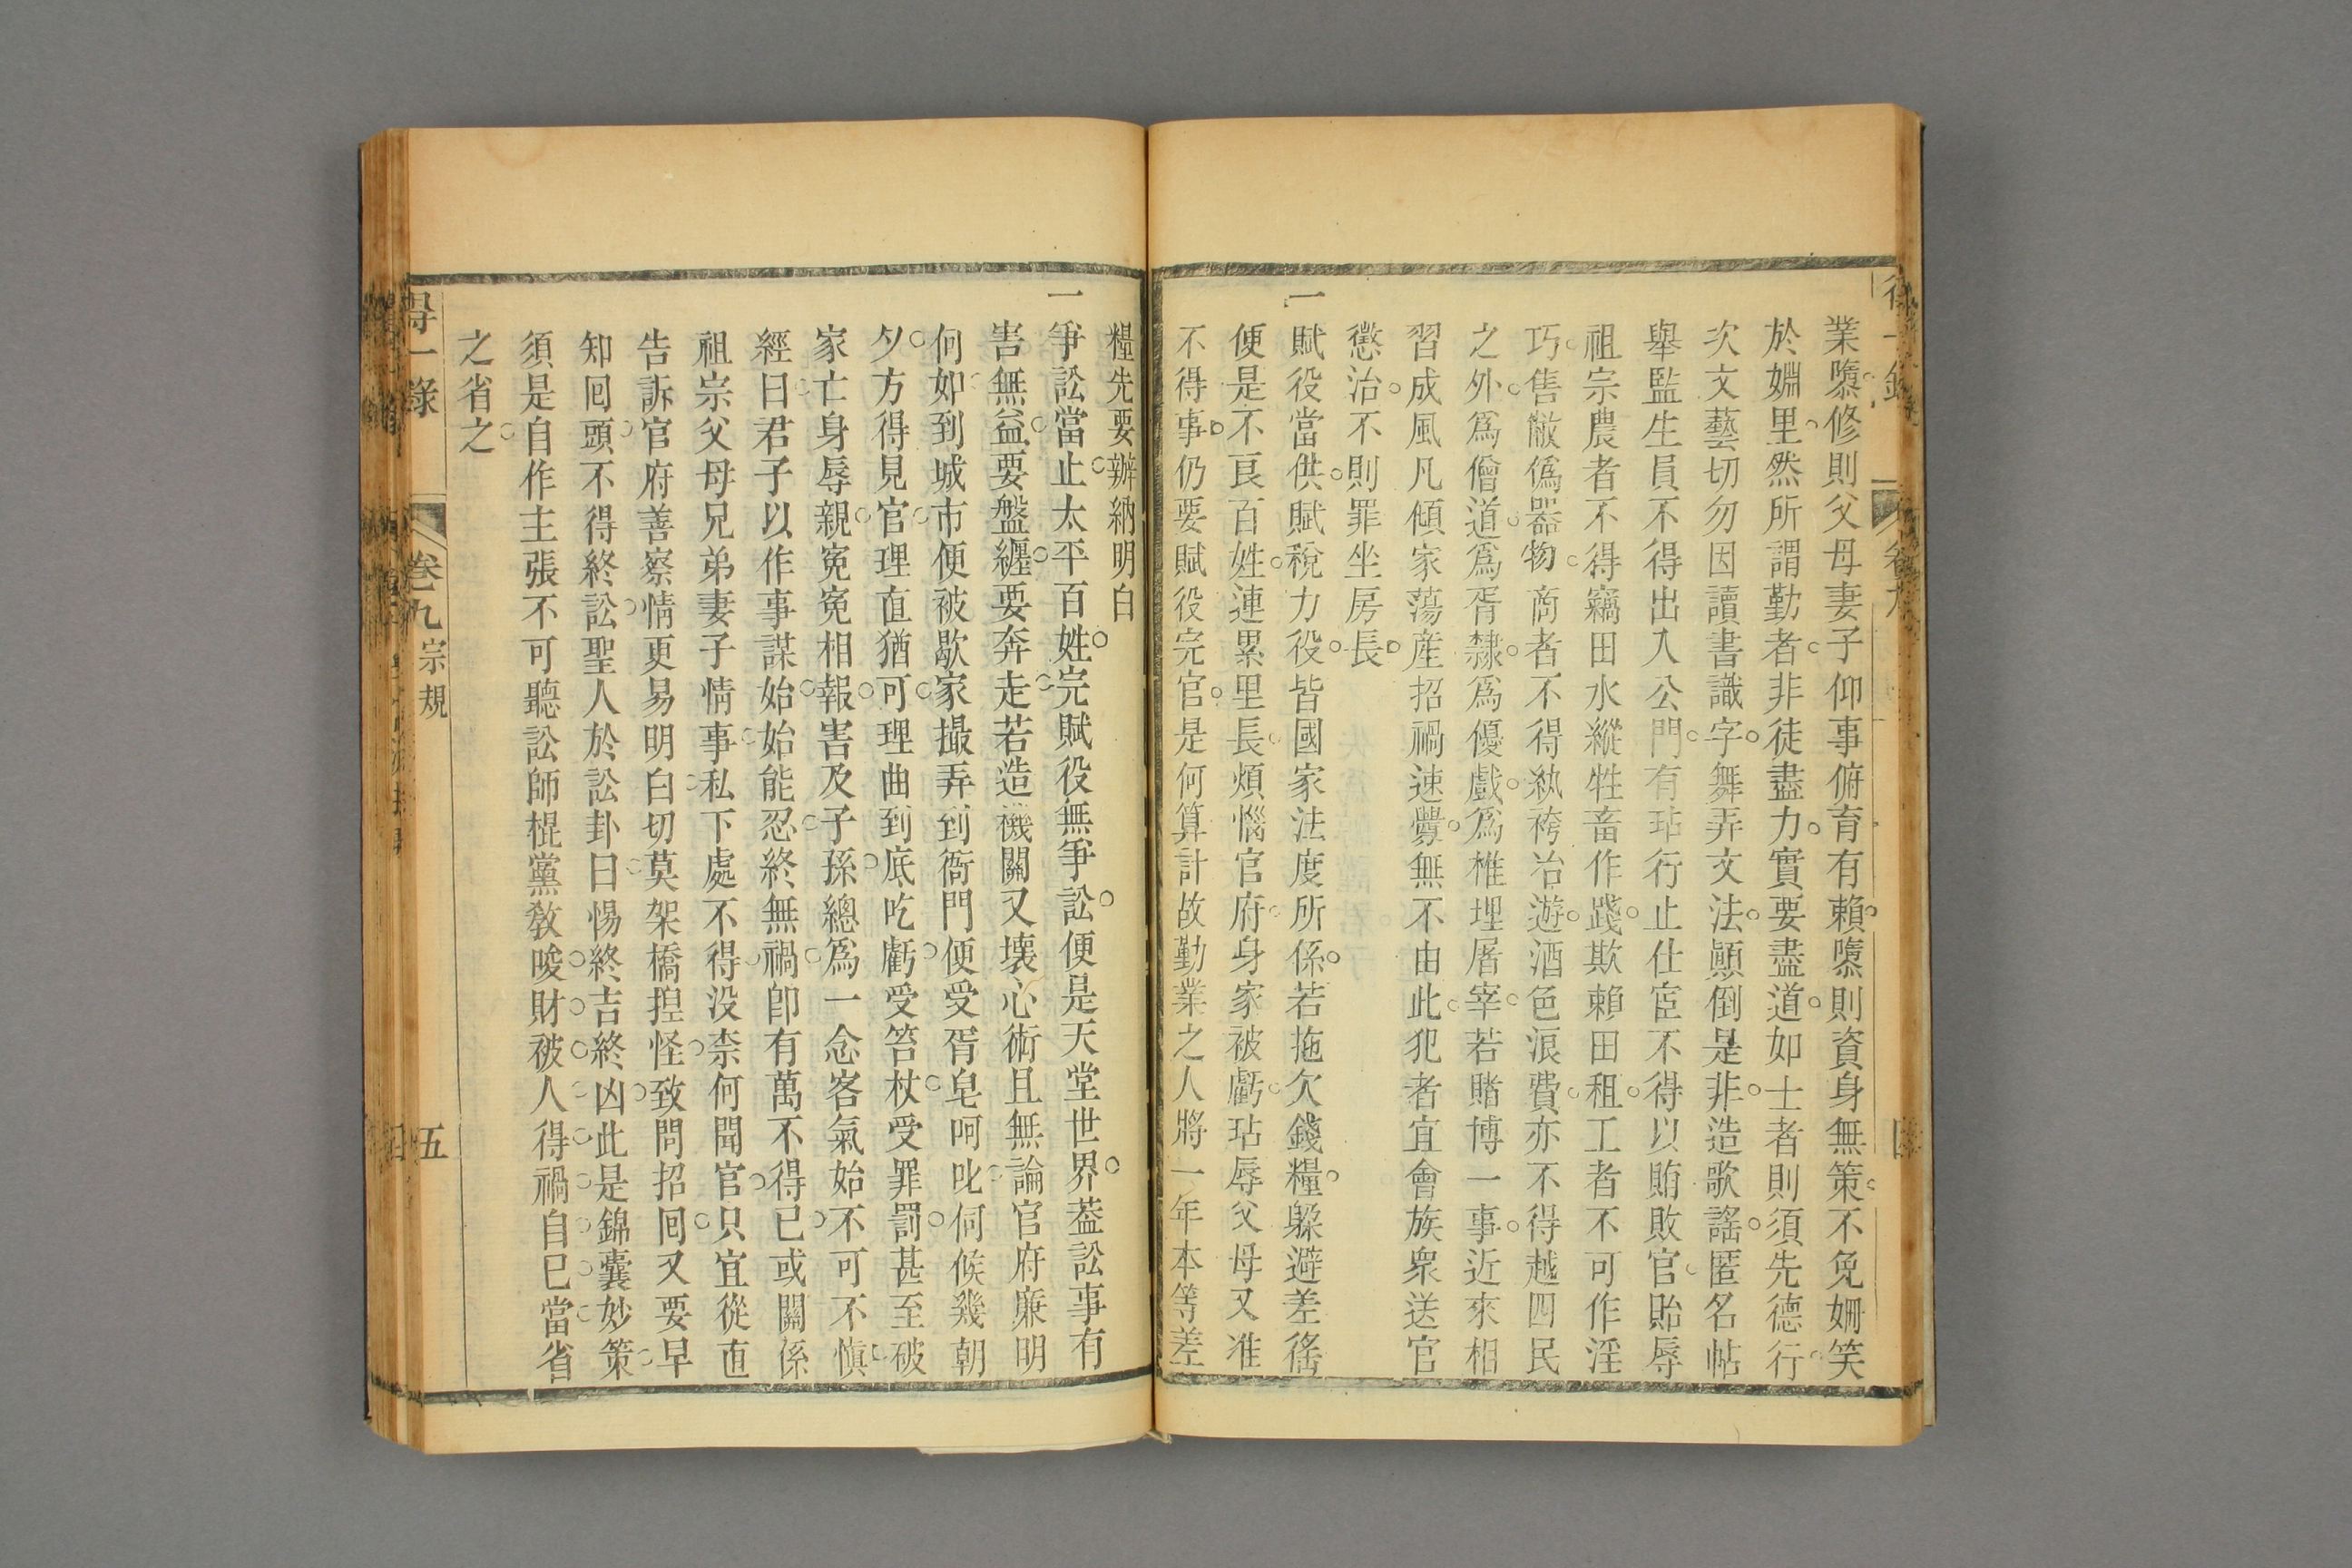 業隳修則父母妻子仰事俯育有賴隳則資身無策不免姍笑
於姻里然所謂勤者非徒盡力實要盡道如士者則須先德行
次文藝切勿因讀書識字舞弄文法顚倒是非造歌謠匿名帖
舉監生員不得出入公門有玷行止仕宦不得以賄敗官貽辱
祖宗農者不得竊田水縱牲畜作踐欺賴田租工者不可作淫
巧售敝僞器物商者不得紈袴冶遊酒色浪費亦不得越四民
之外爲僧道爲胥隸爲優戲爲椎埋屠宰若賭博一事近來相
習成風凡傾家蕩産招禍速釁無不由此犯者宜會族衆送官
懲治不則罪坐房長
一賦役當供賦稅力役皆國家法度所係若拖欠錢糧躲避差徭
便是不良百姓連累里長煩惱官府身家被虧玷辱父母又准
不得事仍要賦役完官是何算計故勤業之人將一年本等差
糧先要辦納明白
一爭訟當止太平百姓完賦役無爭訟便是天堂世界葢訟事有
害無益要盤纏要奔走若造機關又壞心術且無論官府廉明
何如到城市便被歇家撮弄到衙門便受胥皂呵叱伺候幾朝
夕方得見官理直猶可理曲到底吃虧受笞杖受罪罰甚至破
家亡身辱親寃寃相報害及子孫總爲一念客氣始不可不愼
經曰君子以作事謀始始能忍終無禍卽有萬不得已或關係
祖宗父母兄弟妻子情事私下處不得没柰何聞官只宜從直
告訴官府善察情更易明白切莫架橋揑怪致問招囘又要早
知囘頭不得終訟聖人於訟卦曰惕終吉終凶此是錦囊妙策
須是自作主張不可聽訟師棍黨敎唆財被人得禍自己當省
之省之
得一錄
卷九
宗規
五